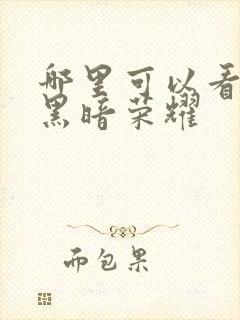 哪里可以看
黑暗荣耀
而包果